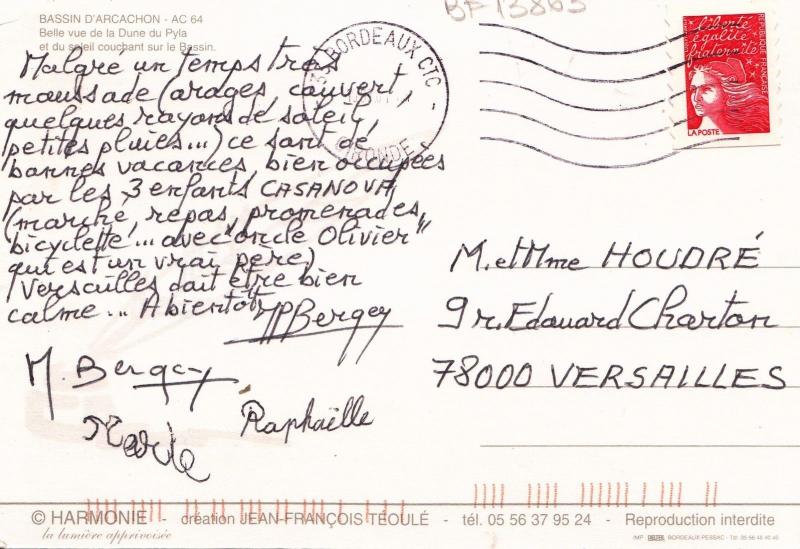 BASSIN D'ARCACHON - AC 64
Belle vue de la Dune du Pyla
et du soleil couchant sur le Bassin.
BF 13863
33 BORDEAUX CTC -
GIRONDE
liberté
égalité
fraternité
RÉPUBLIQUE FRANÇAISE
LA POSTE
Malgré un temps très
maussade (orages, couvert,
quelques rayons de soleil,
petites pluies...) ce sont de
bonnes vacances, bien occupées
par les 3 enfants CASANOVA,
(marché, repas, promenades,
bicyclette... avec "oncle Olivier"
qui est un vrai père)
Versailles doit être bien
calme... A bientôt
MPBergey
M. Bergey
Marie
Raphaëlle
M. et Mme HOUDRÉ
9 r. Edouard Charton
78000 VERSAILLES
© HARMONIE - création JEAN-FRANÇOIS TEOULÉ - tél. 05 56 37 95 24 - Reproduction interdite
la lumière apprivoisée
IMP. BORDEAUX PESSAC - Tél 05 56 45 40 45